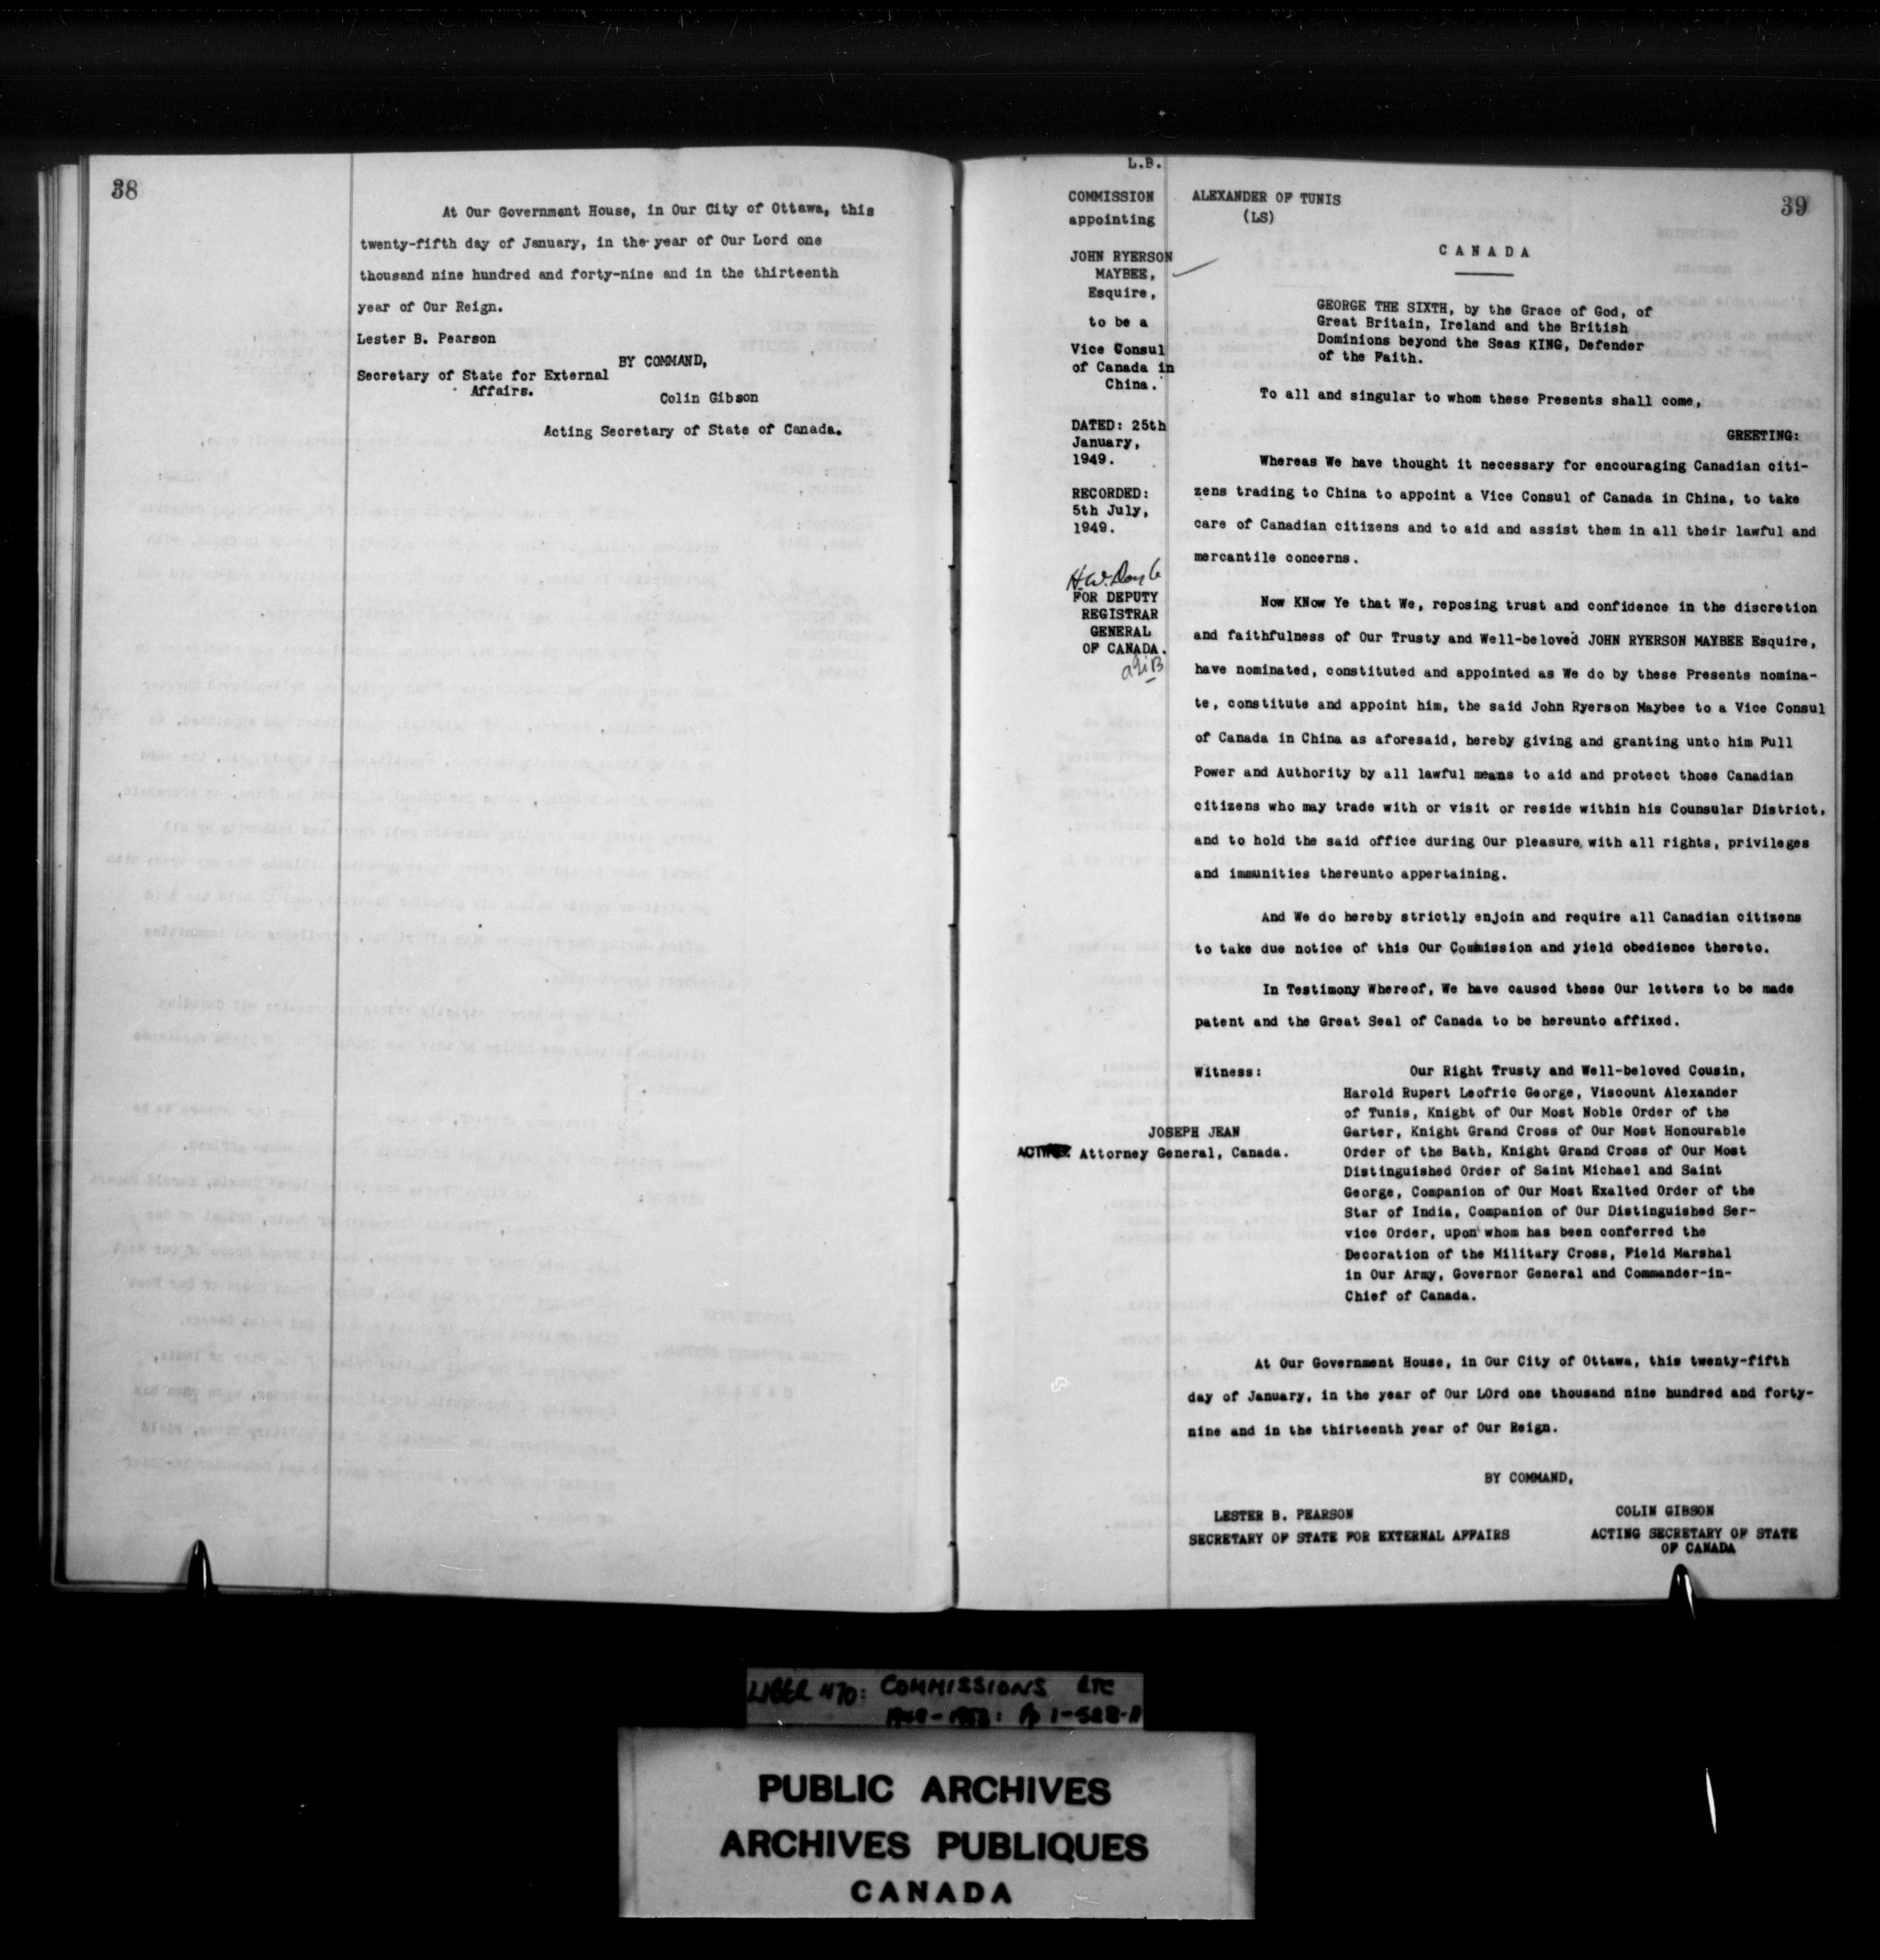 38
At Our Government House, in Our City of Ottawa, this
twenty-fifth day of January, in the year of Our Lord one
thousand nine hundred and forty-nine and in the thirteenth
year of Our Reign.
Lester B. Pearson
BY COMMAND,
Secretary of State for External
Affairs.
Colin Gibson
Acting Secretary of State of Canada.
39
L.B.
COMMISSION
appointing
JOHN RYERSON
MAYBEE,
Esquire,
to be a
Vice Consul
of Canada in
China.
DATED: 25th
January,
1949.
RECORDED:
5th July,
1949.
FOR DEPUTY
REGISTRAR
GENERAL
OF CANADA.
ALEXANDER OF TUNIS
(LS)
CANADA
GEORGE THE SIXTH, by the Grace of God, of
Great Britain, Ireland and the British
Dominions beyond the Seas KING, Defender
of the Faith.
To all and singular to whom these Presents shall come,
GREETING:
Whereas We have thought it necessary for encouraging Canadian citi-
zens trading to China to appoint a Vice Consul of Canada in China, to take
care of Canadian citizens and to aid and assist them in all their lawful and
mercantile concerns.
Now KNow Ye that We, reposing trust and confidence in the discretion
and faithfulness of Our Trusty and Well-beloved JOHN RYERSON MAYBEE Esquire,
have nominated, constituted and appointed as We do by these Presents nomina-
te, constitute and appoint him, the said John Ryerson Maybee to a Vice Consul
of Canada in China as aforesaid, hereby giving and granting unto him Full
Power and Authority by all lawful means to aid and protect those Canadian
citizens who may trade with or visit or reside within his Counsular District,
and to hold the said office during Our pleasure with all rights, privileges
and immunities thereunto appertaining.
And We do hereby strictly enjoin and require all Canadian citizens
to take due notice of this Our Commission and yield obedience thereto.
In Testimony Whereof, We have caused these Our letters to be made
patent and the Great Seal of Canada to be hereunto affixed.
Witness:
Our Right Trusty and Well-beloved Cousin,
Harold Rupert Leofric George, Viscount Alexander
of Tunis, Knight of Our Most Noble Order of the
Garter, Knight Grand Cross of Our Most Honourable
Order of the Bath, Knight Grand Cross of Our Most
Distinguished Order of Saint Michael and Saint
George, Companion of Our Most Exalted Order of the
Star of India, Companion of Our Distinguished Ser-
vice Order, upon whom has been conferred the
Decoration of the Military Cross, Field Marshal
in Our Army, Governor General and Commander-in-
Chief of Canada.
JOSEPH JEAN
Attorney General, Canada.
At Our Government House, in Our City of Ottawa, this twenty-fifth
day of January, in the year of Our LOrd one thousand nine hundred and forty-
nine and in the thirteenth year of Our Reign.
BY COMMAND,
LESTER B. PEARSON
SECRETARY OF STATE FOR EXTERNAL AFFAIRS
COLIN GIBSON
ACTING SECRETARY OF STATE
OF CANADA
LIBER 470: COMMISSIONS ETC
PUBLIC ARCHIVES
ARCHIVES PUBLIQUES
CANADA